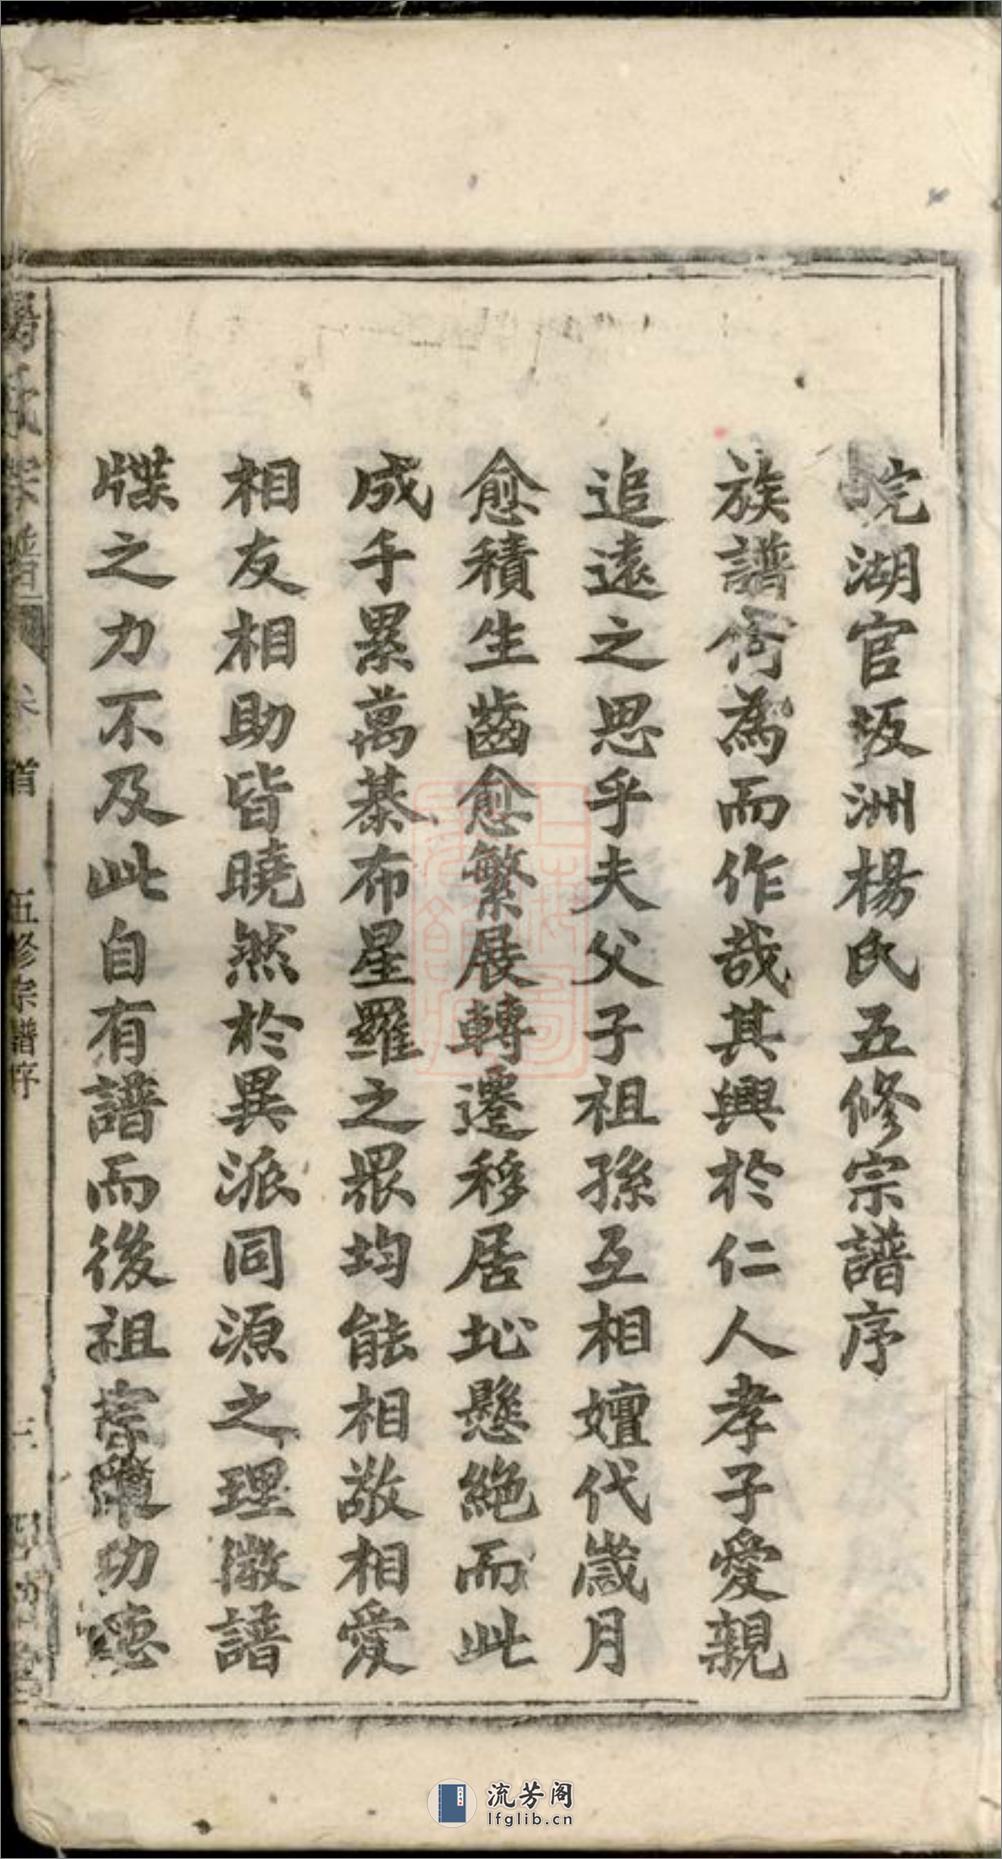 皖湖官坂洲楊氏五修宗譜序
族譜何為而作哉其興於仁人孝子愛親
追遠之思乎夫父子祖孫互相嬗代歲月
愈積生齒愈繁展轉遷移居址懸絕而此
成千累萬棊布星羅之眾均能相敬相愛
相友相助皆曉然於異派同源之理微譜
牒之力不及此自有譜而後祖宗功德
楊氏宗譜 卷首 五修宗譜序 三 四知堂
流芳阁
lfglib.cn